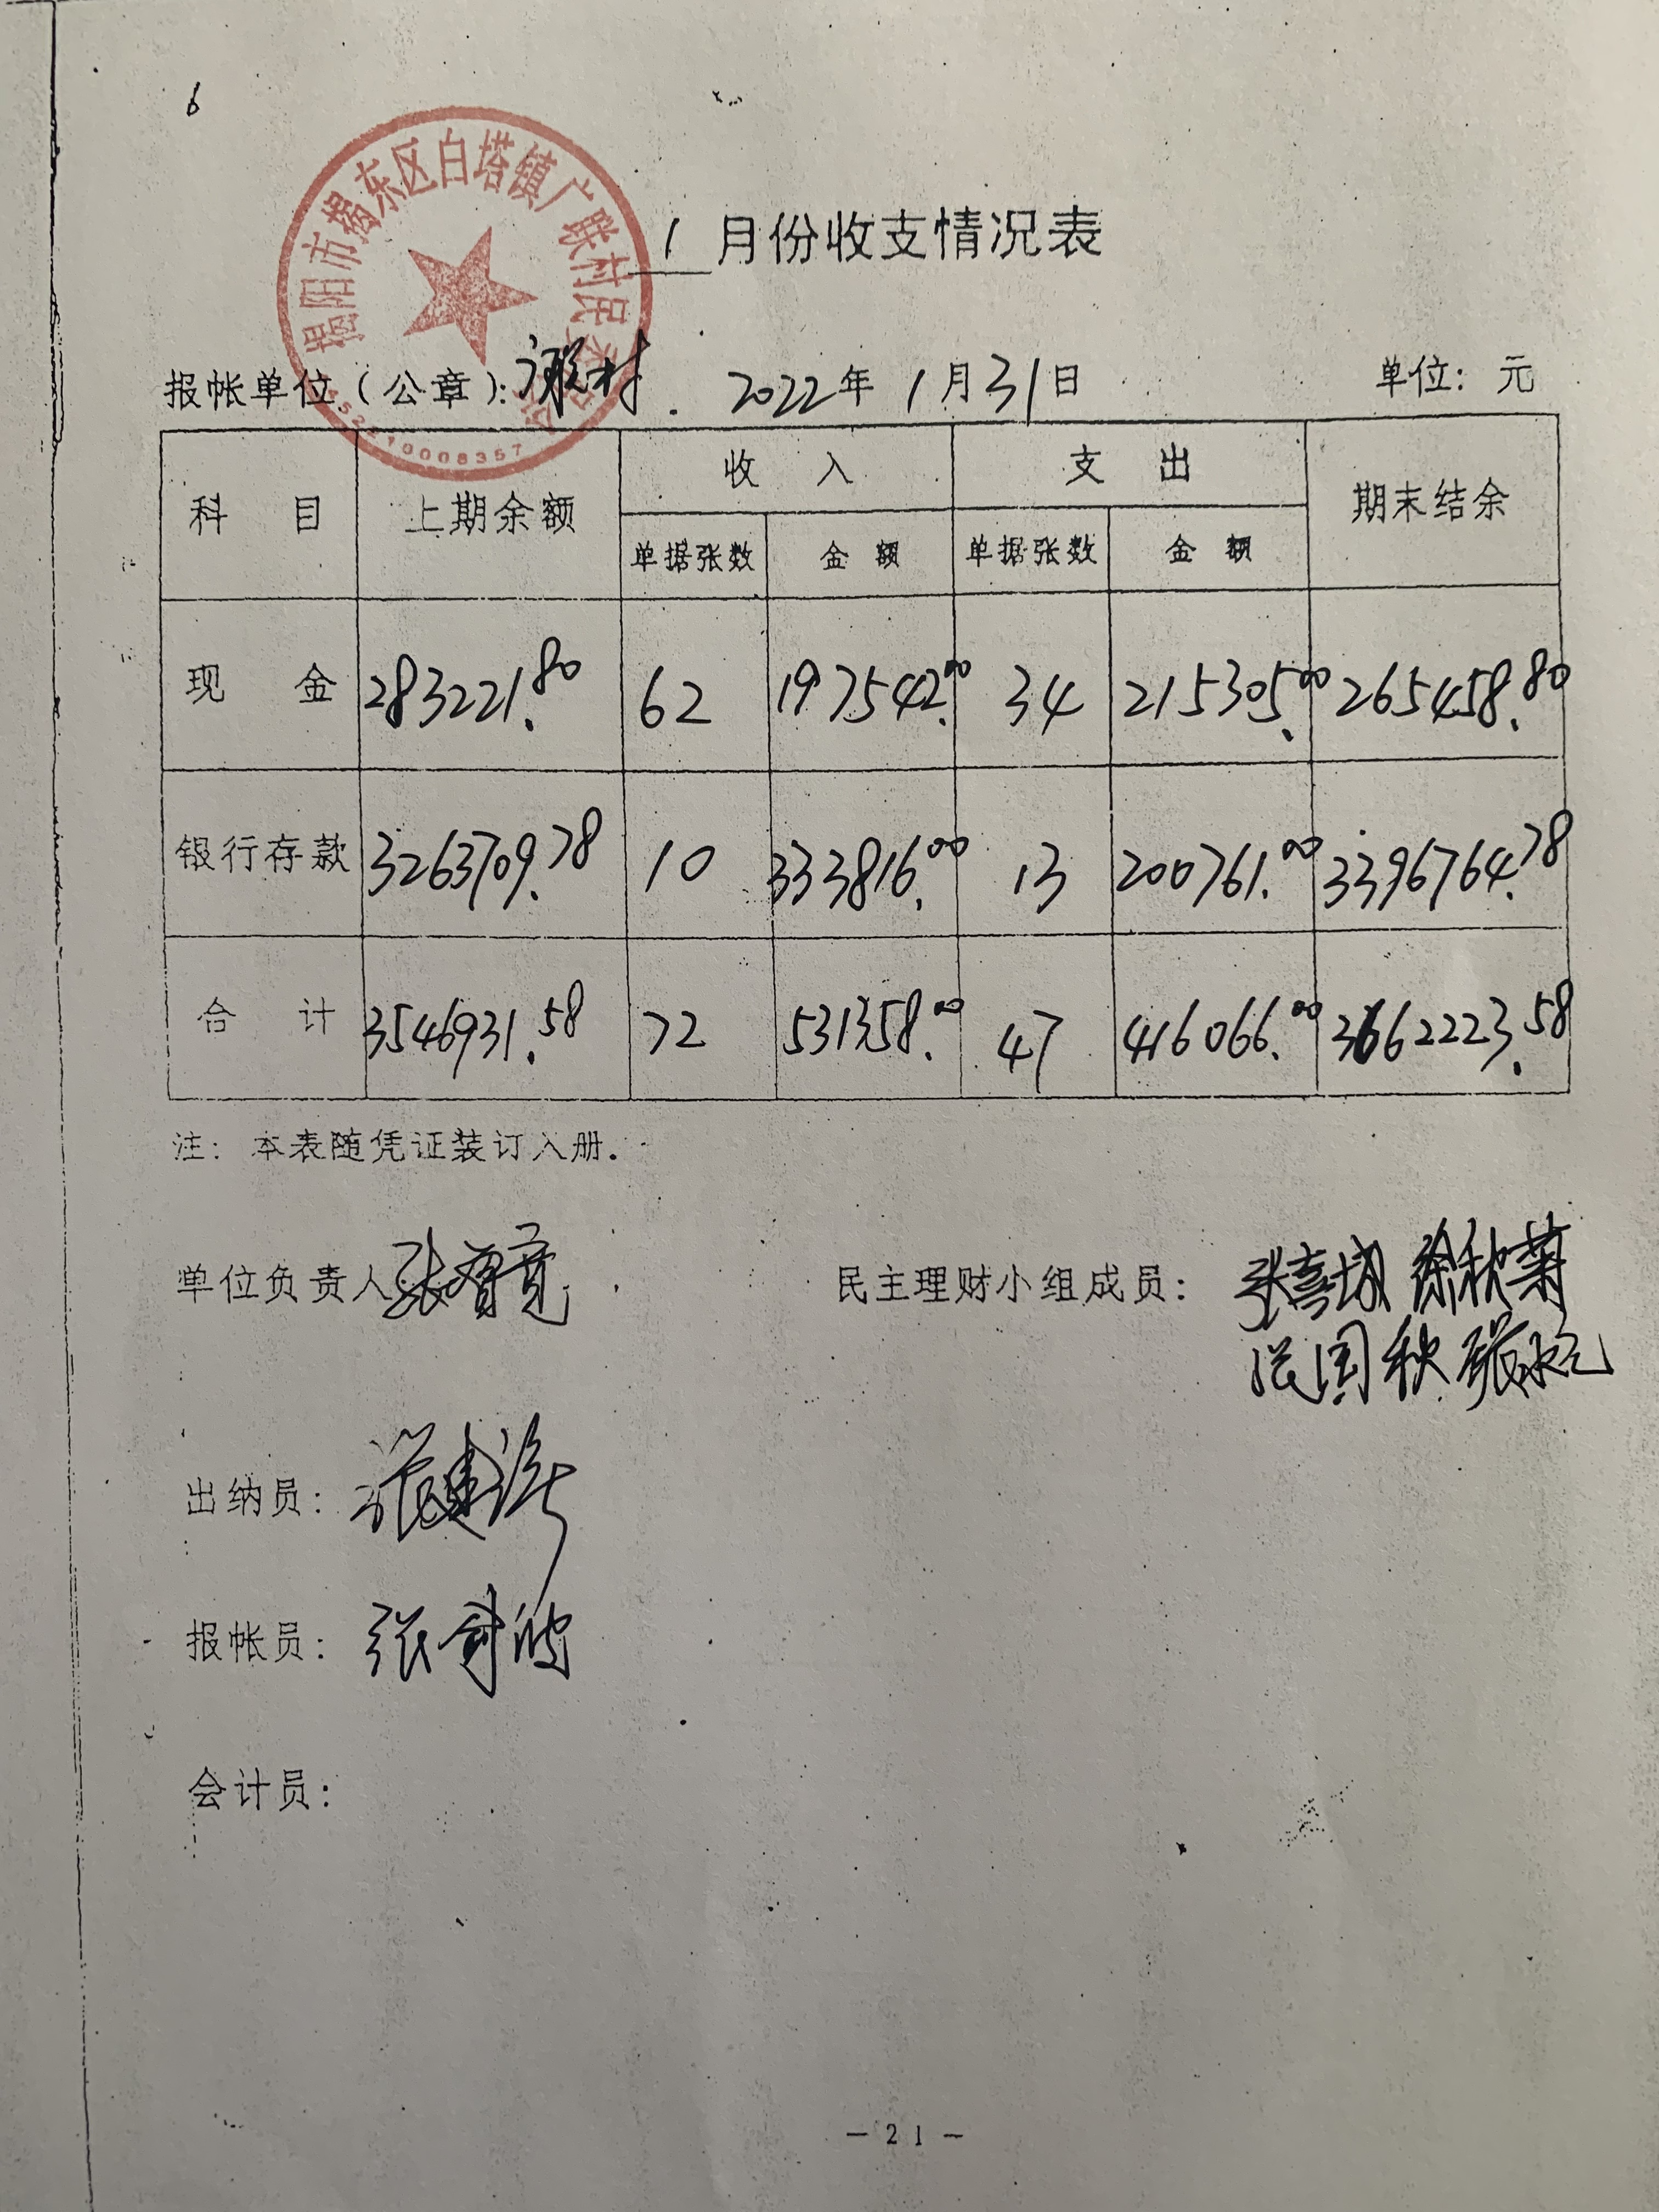 6
揭阳市揭东区白塔镇广联村民委员会
1 月份收支情况表
报帐单位(公章): 广联村. 2022年1月31日 单位: 元
科 目 上期余额 收 入 支 出 期末结余
单据张数 金 额 单据张数 金 额
现 金 283221.80 62 197542.00 34 215305.00 265458.80
银行存款 3263709.78 10 333816.00 13 200761.00 3396764.78
合 计 3546931.58 72 531358.00 47 416066.00 3662223.58
注: 本表随凭证装订入册.
单位负责人: 民主理财小组成员: 徐秋菊
张国秋
出纳员:
报帐员:
会计员:
— 21 —